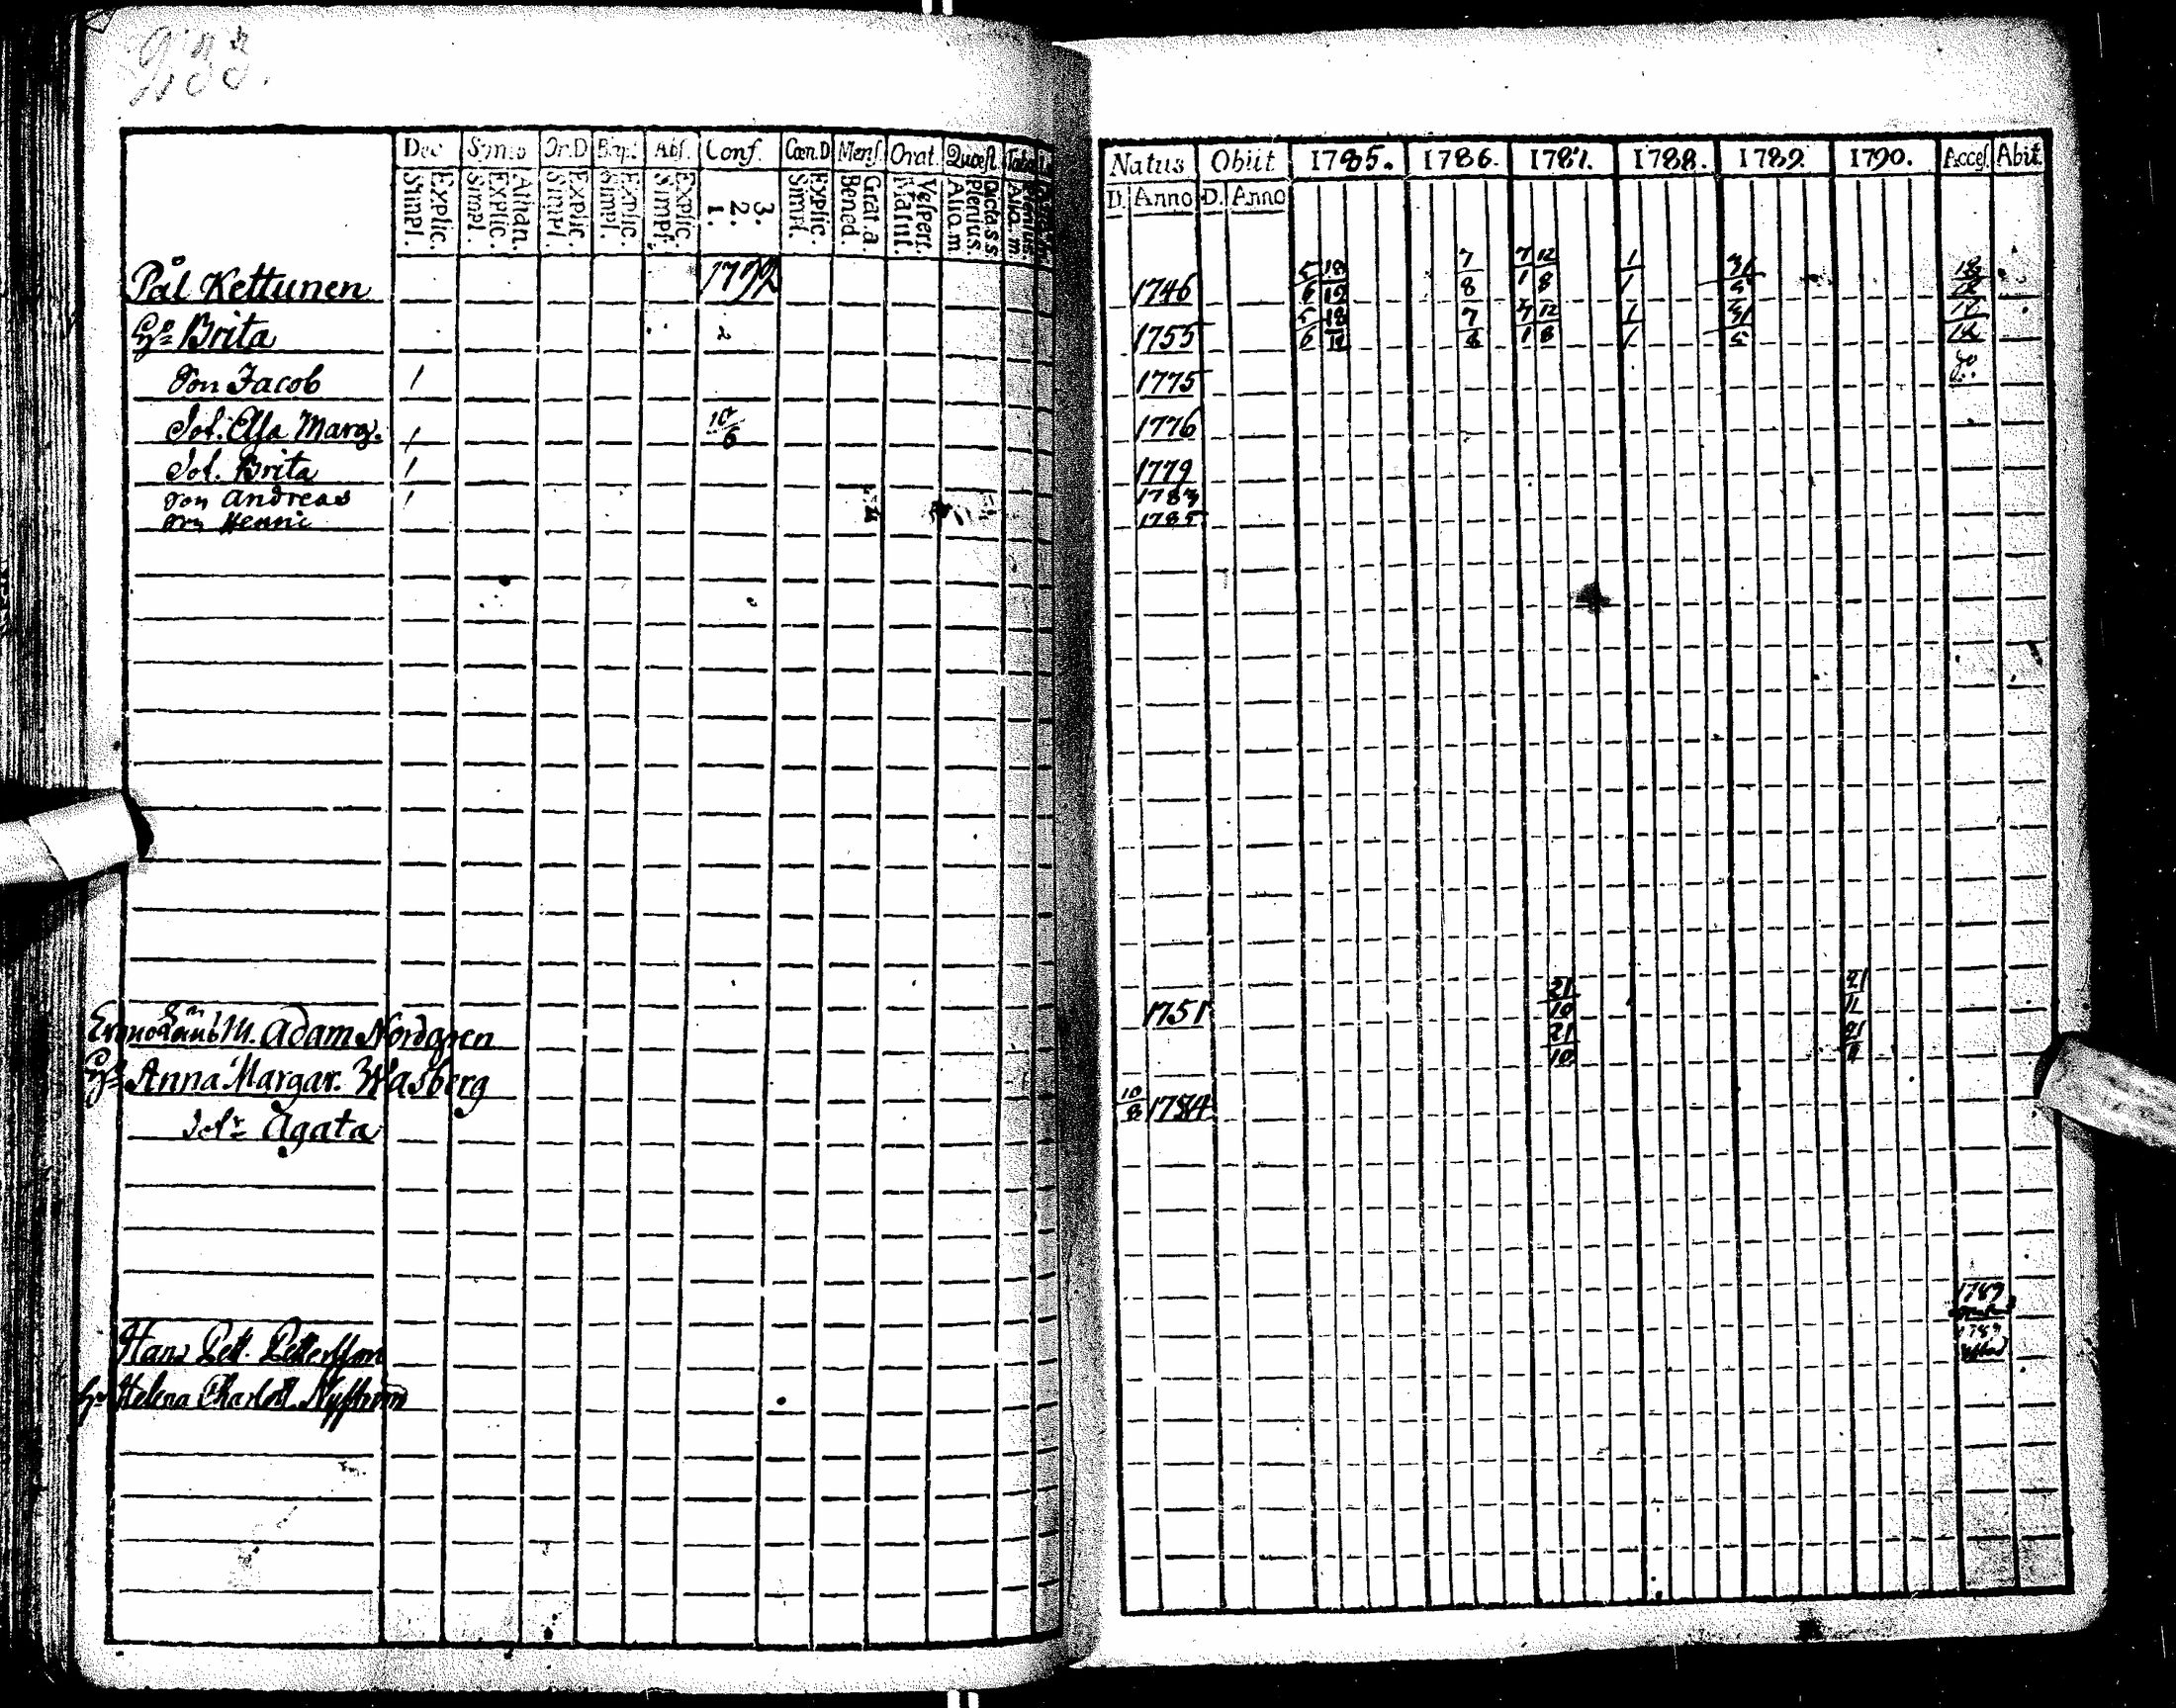 233.
Dec Symb Or.D Bapt Abs. Conf. Cœn.D Mens. Orat. Quæst. Tabu
Explic. Simpl. Athan. Explic. Simpl. Explic. Simpl. Explic. Simpl. Explic. Simpl. 3. 2. 1. Explic. Simpl. Grat.a. Bened. Vesper. Matut. Dicta.s.s. Plenius. Alia.m
Natus Obiit 1785. 1786. 1787. 1788. 1789. 1790. Acces. Abit.
D. Anno D. Anno
Pål Kettunen 1792 1746 5/6 18/12 7/8 7/1 12/8 1/1 31/5 18/12
Hu Brita 2 1755 5/6 18/12 7/8 7/1 12/8 1/1 31/5 12/12
Son Jacob / 1775
Dot. Elsa Marg. / 1776
Dot. Brita / 1779
Son Andreas / 1783
Son Henric 1785
M. Adam Nordgren 1751 21/10 21/11
Hu Anna Margar. Wasberg 21/10 21/11
Dotr Agata 10/8 1784
Hans Pett. Pettersson 1789
Hu Helena Charlott. Nyström 1789